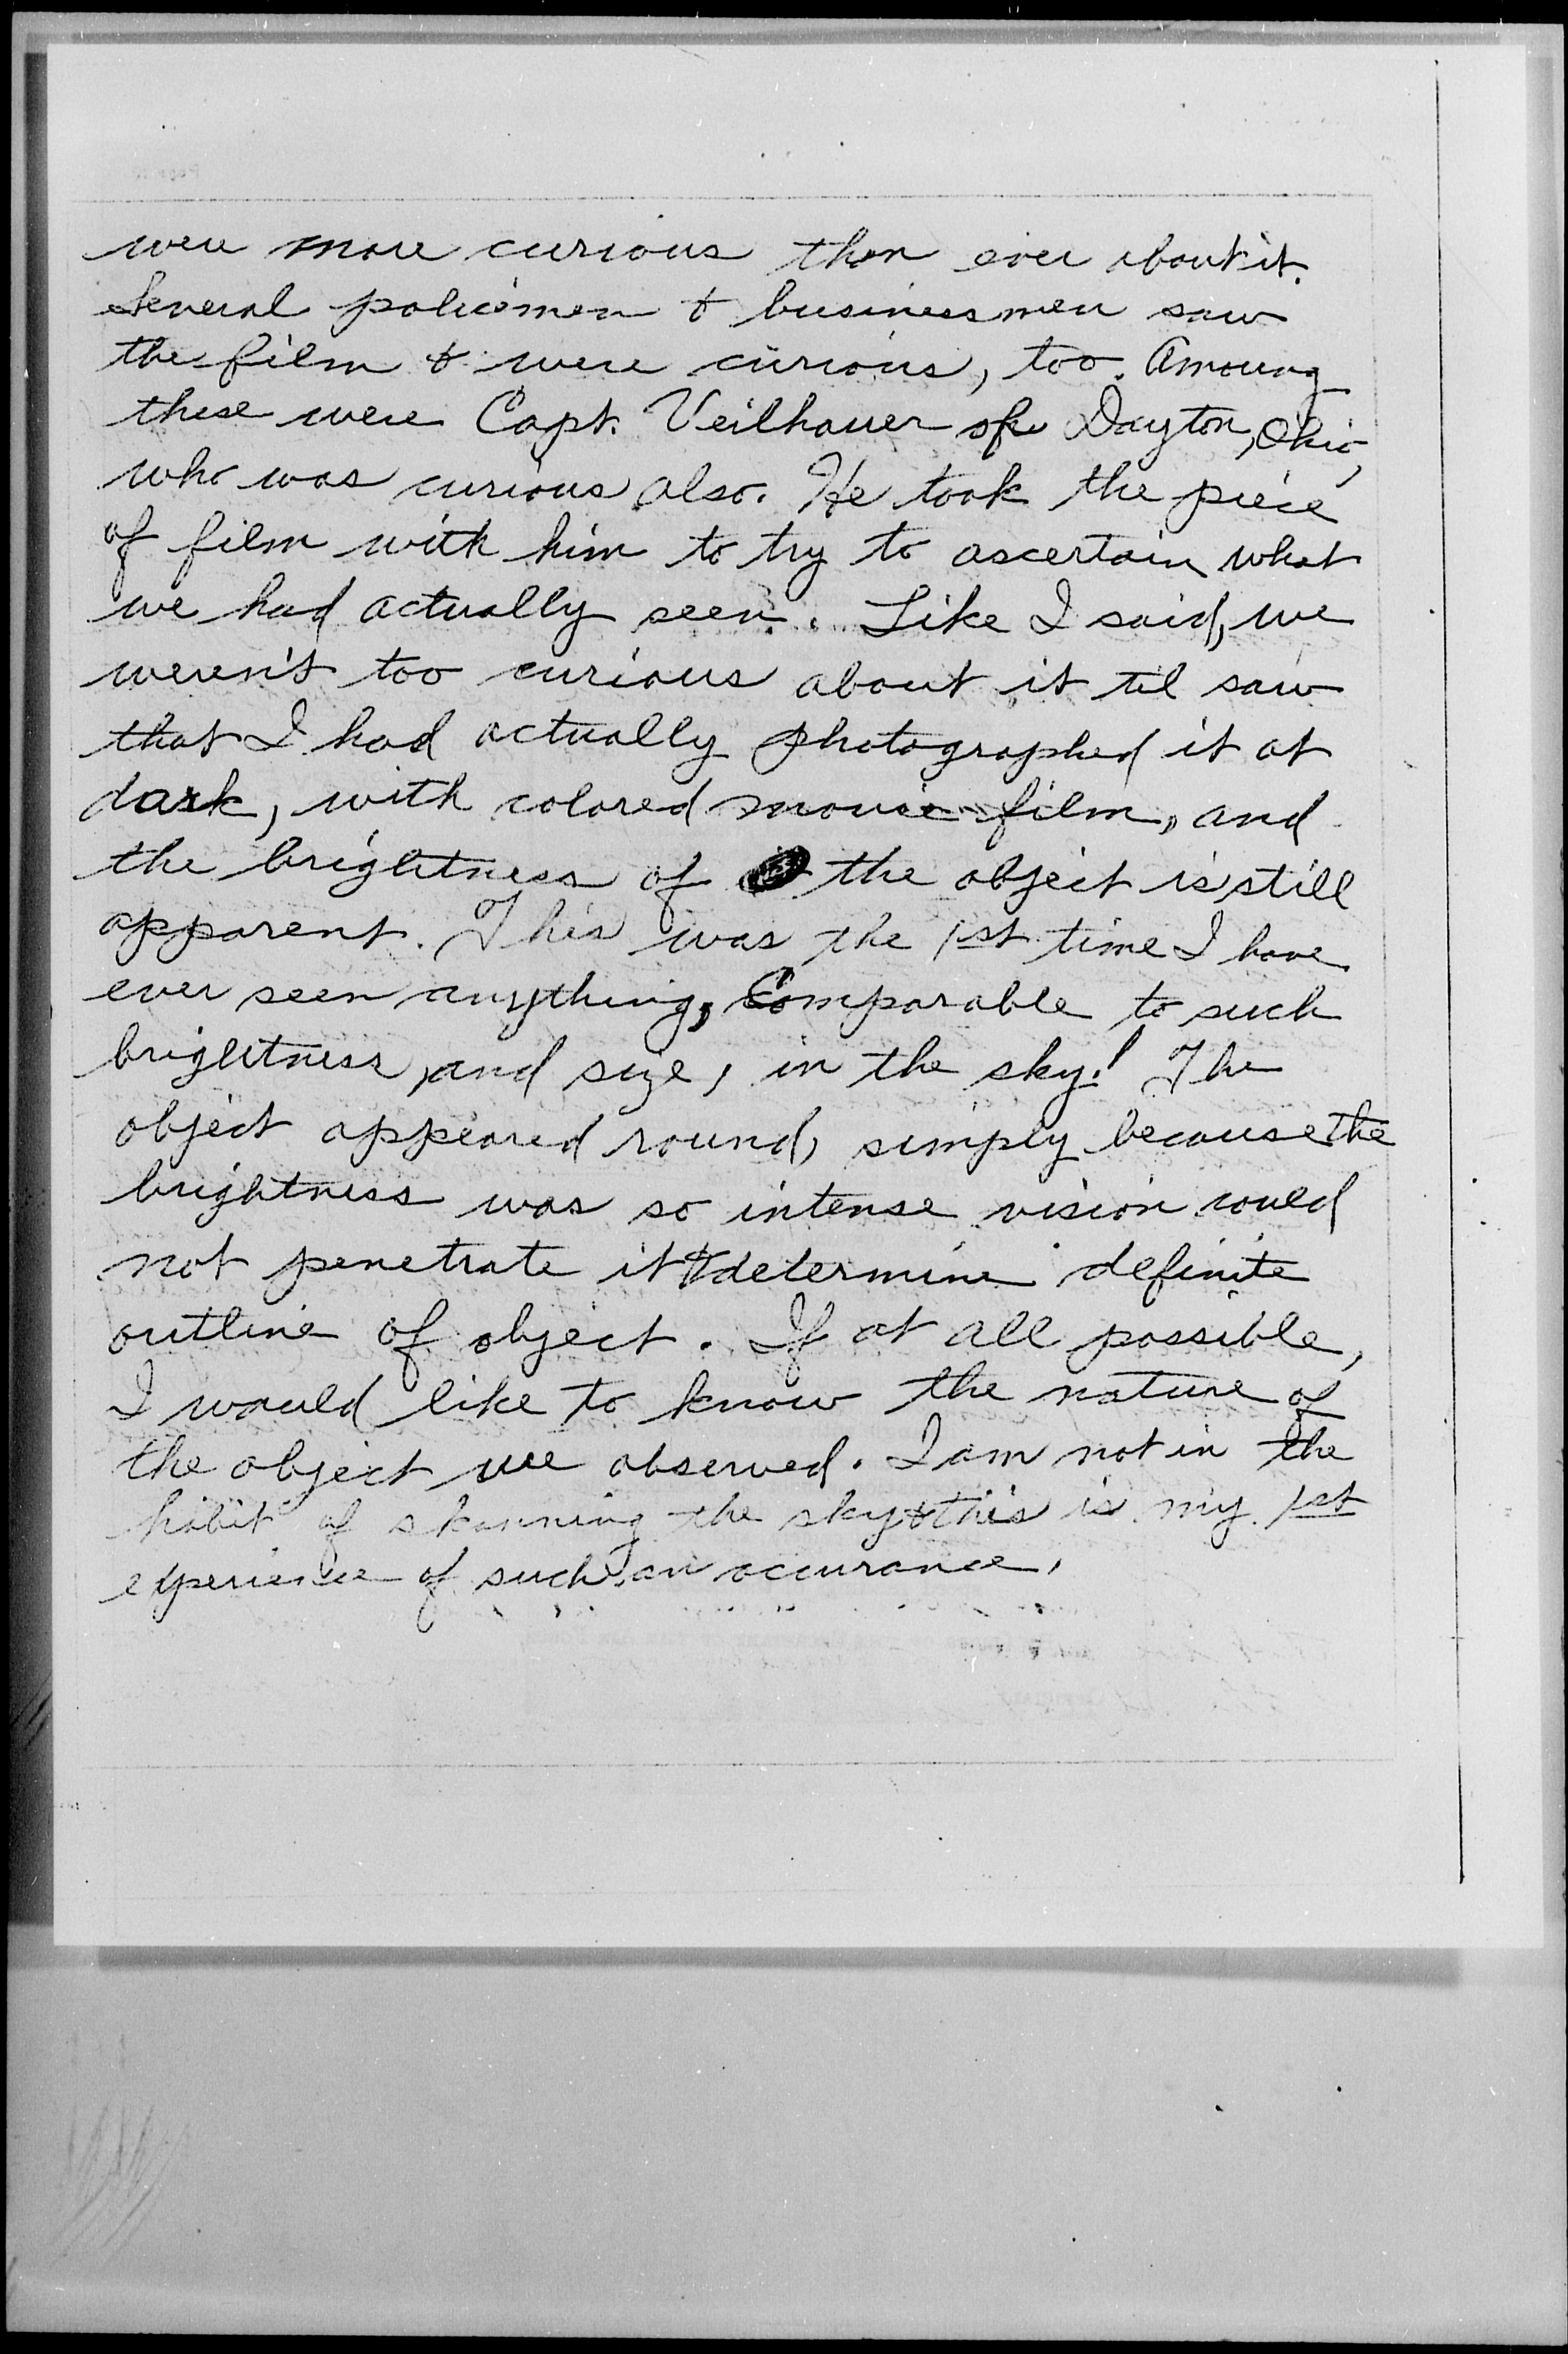 were more curious than ever about it.
Several policemen & businessmen saw
the film & were curious, too. Amoung
these were Capt. Veilhauer of Dayton, Ohio,
who was curious also. He took the piece
of film with him to try to ascertain what
we had actually seen. Like I said, we
weren't too curious about it til saw
that I had actually photographed it at
dark, with colored movie film, and
the brightness of the object is still
apparent. This was the 1st time I have
ever seen anything, Comparable to such
brightness, and size, in the sky! The
object appeared round, simply because the
brightness was so intense vision could
not penetrate it & determine definite
outline of object. If at all possible,
I would like to know the nature of
the object we observed. I am not in the
habit of skanning the sky & this is my 1st
experience of such an occurance.